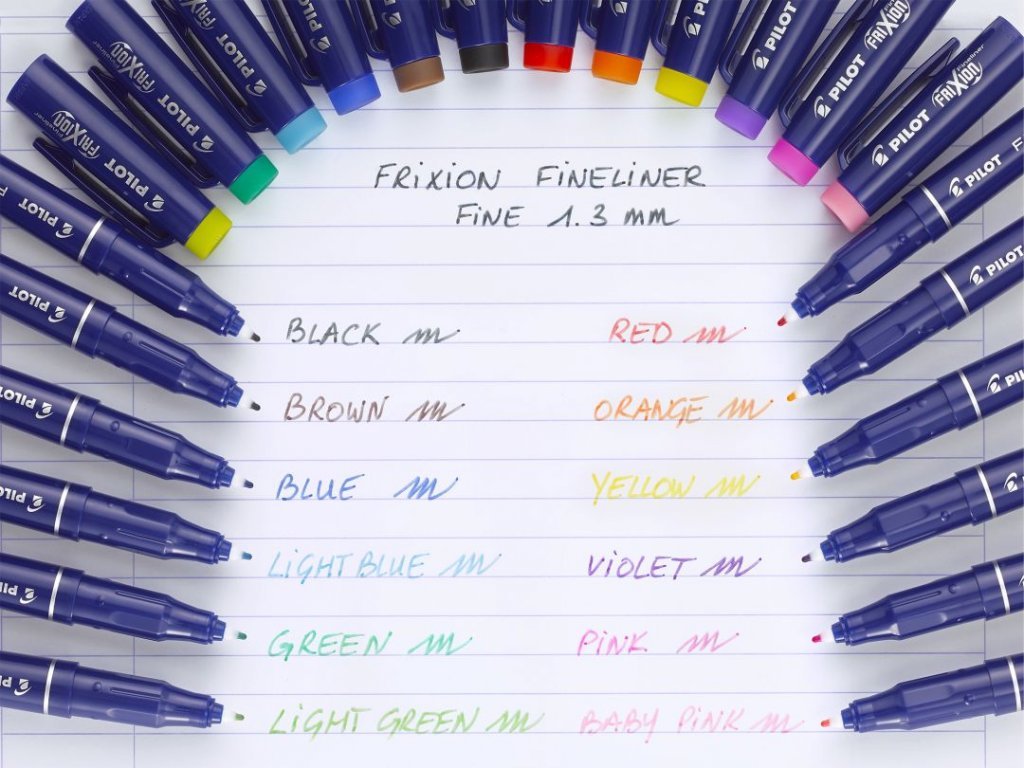 FRiXiON FiNELiNER
FiNE 1.3 mm
BLACK
RED
BROWN
ORANGE
BLUE
YELLOW
LiGHT BLUE
ViOLET
GREEN
PiNK
LiGHT GREEN
BABY PiNK
PILOT
FRIXION
Fineliner
PILOT
FRIXION
PILOT
PILOT
PILOT
PILOT
PILOT
FRIXION
PILOT
FRIXION
Fineliner
PILOT
PILOT
PILOT
PILOT
PILOT
PILOT